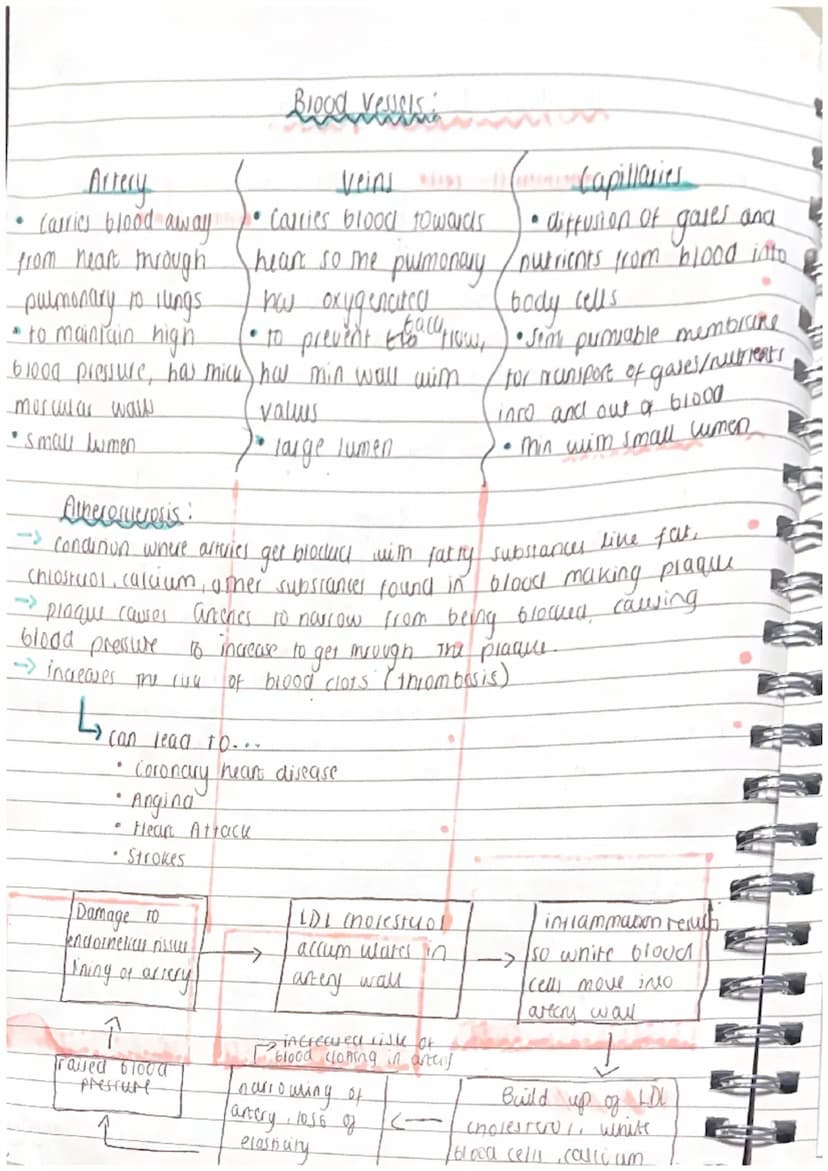 Blood Vessels:
Artery
• Carries blood away
from heart through
pulmonary to lungs
• to maintain high
blood pressure, has thick
muscular walls
• small lumen
Veins
• Carries blood towards
heart so the pulmonary
has oxygenated
• to prevent back flow,
has thin wall with
values
• large lumen
Capillaries
• diffusion of gases and
nutrients from blood into
body cells
• semi permable membrane
for transport of gases/nutrients
into and out of blood
• thin with small lumen
Atherosclerosis:
→ condition where arteries get blocked with fatty substances like fat,
cholestrol, calcium, other substances found in blood making plaque
→ plaque causes arteries to narrow from being blocked, causing
blood pressure to increase to get through the plaque.
→ increases the risk of blood clots (thrombosis)
↳ can lead to...
• Coronary heart disease
• Angina
• Heart Attack
• Strokes
Damage to
endothelial tissue
lining of artery
→
LDL cholestrol
accumulates in
artery wall
→
inflammation results
so white blood
cells move into
artery wall
Build up of LDL
cholestrol, white
blood cells, calcium
increased risk of
blood clotting in artery
narrowing of
artery, loss of
elasticity
raised blood
pressure